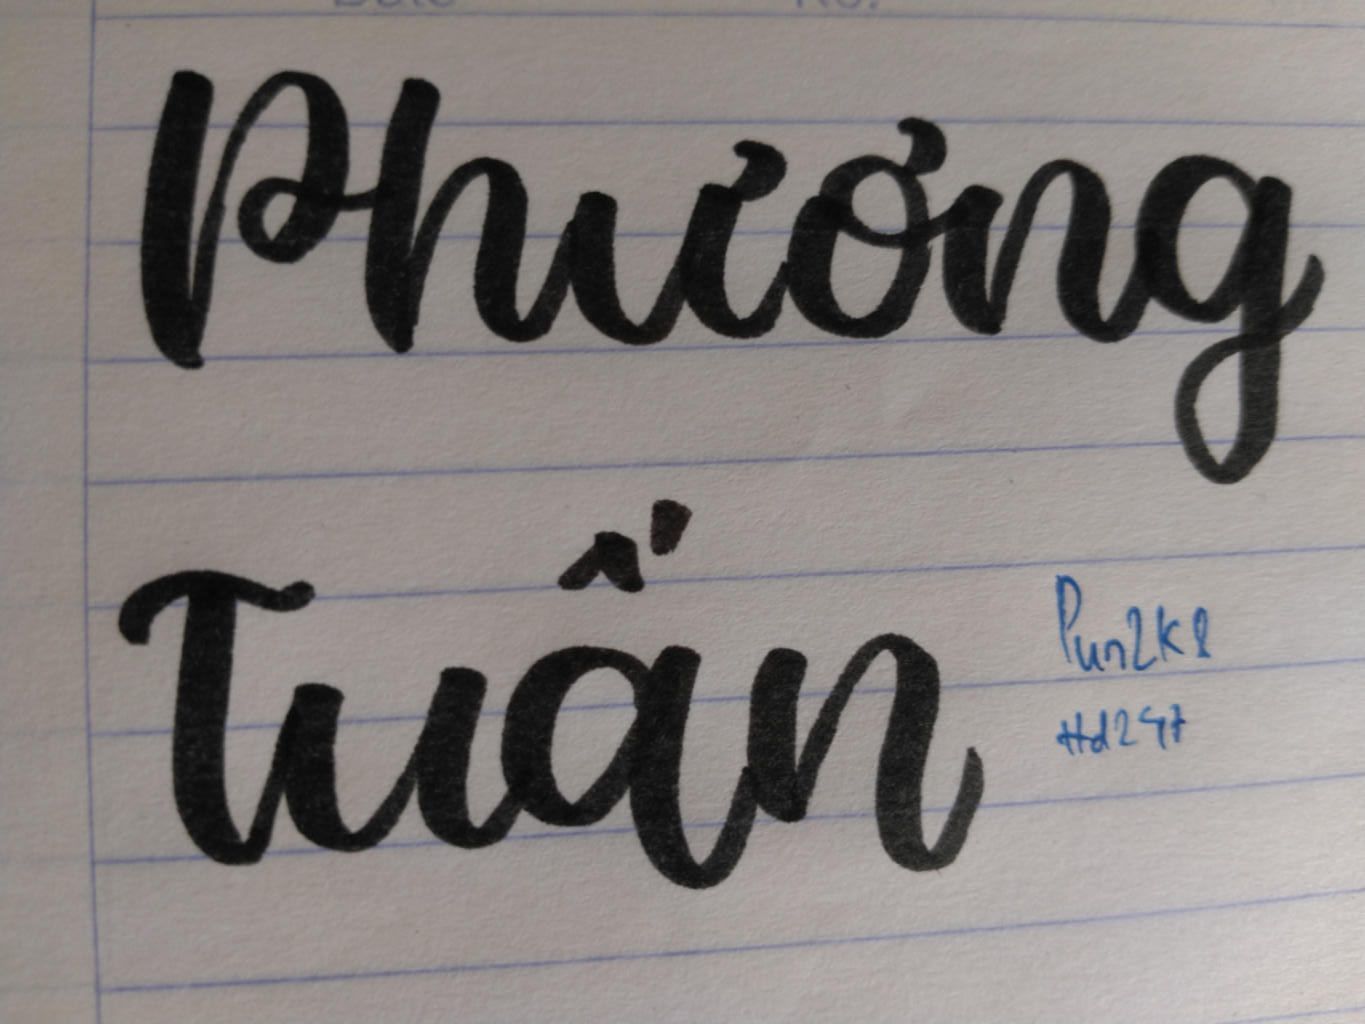 Date No.
Phương
Tuấn
Pun2K8
Hd247